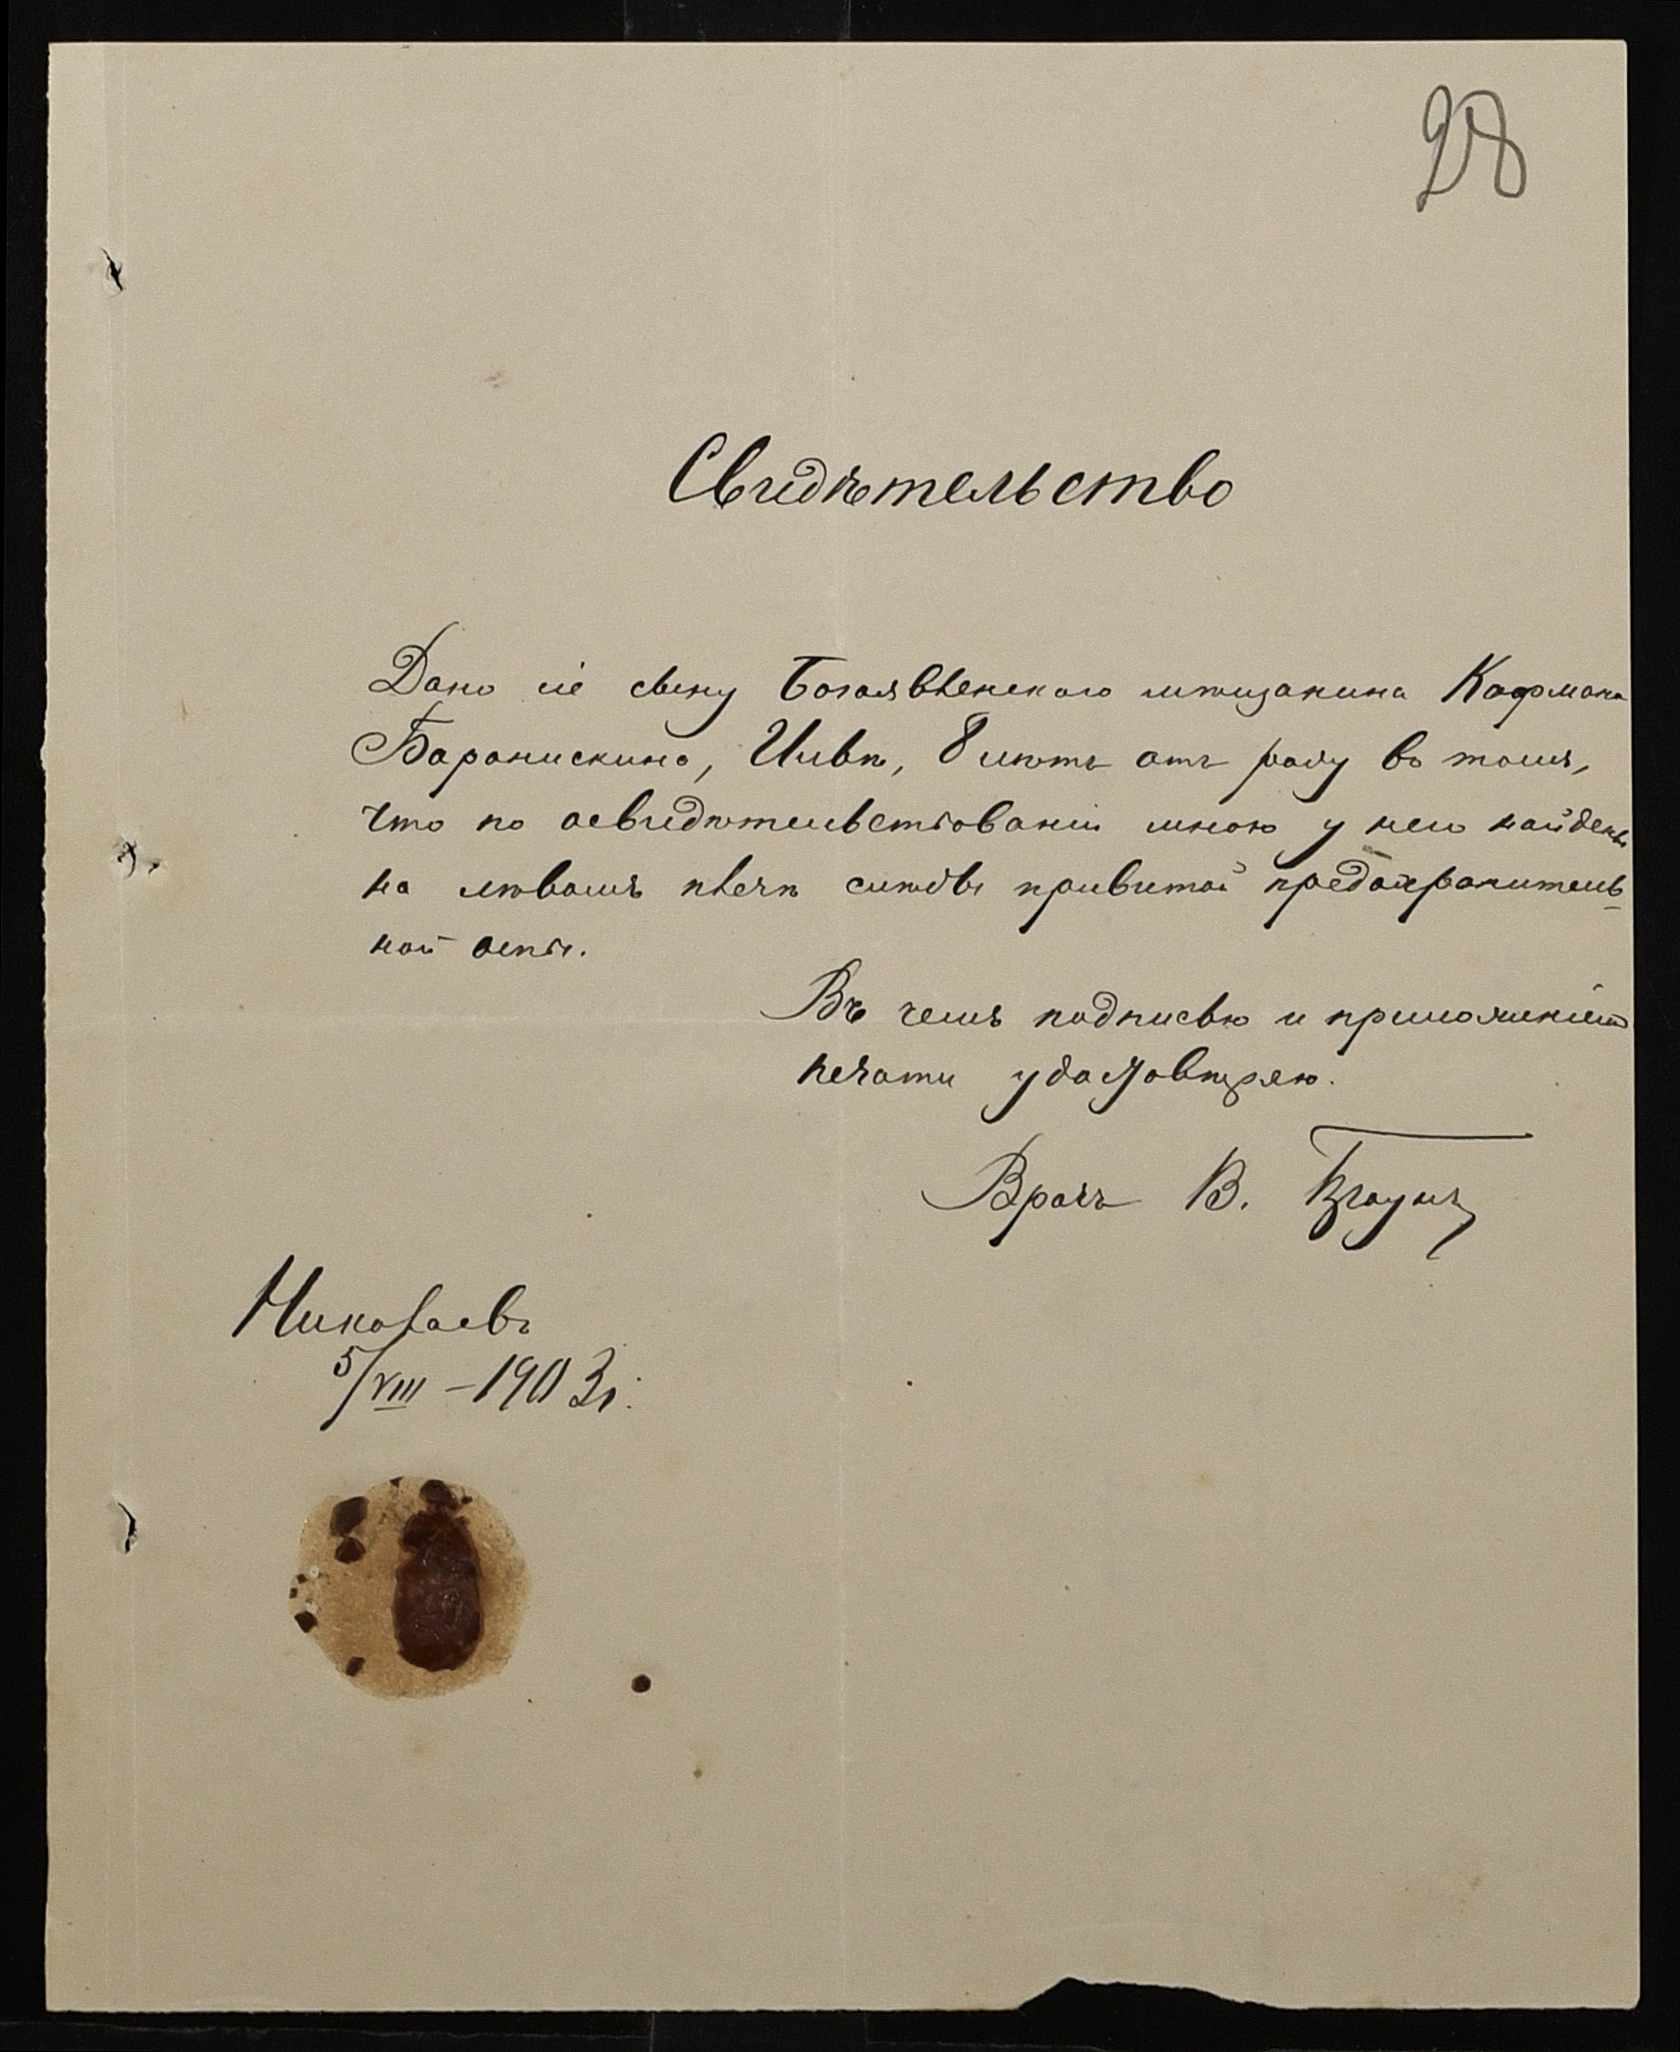 28
Свидѣтельство
Дано сіе сыну Богоявленскаго мѣщанина Кофмана
Баранискина, 8 лѣтъ отъ роду въ томъ,
что по освидѣтельствованіи мною у него найдены
на лѣвомъ плечѣ слѣды привитой предохранитель-
ной оспы.
Въ чемъ подписью и приложеніемъ
печати удостовѣряю.
Врачъ В.
Николаевъ
5/VIII – 1903 г.